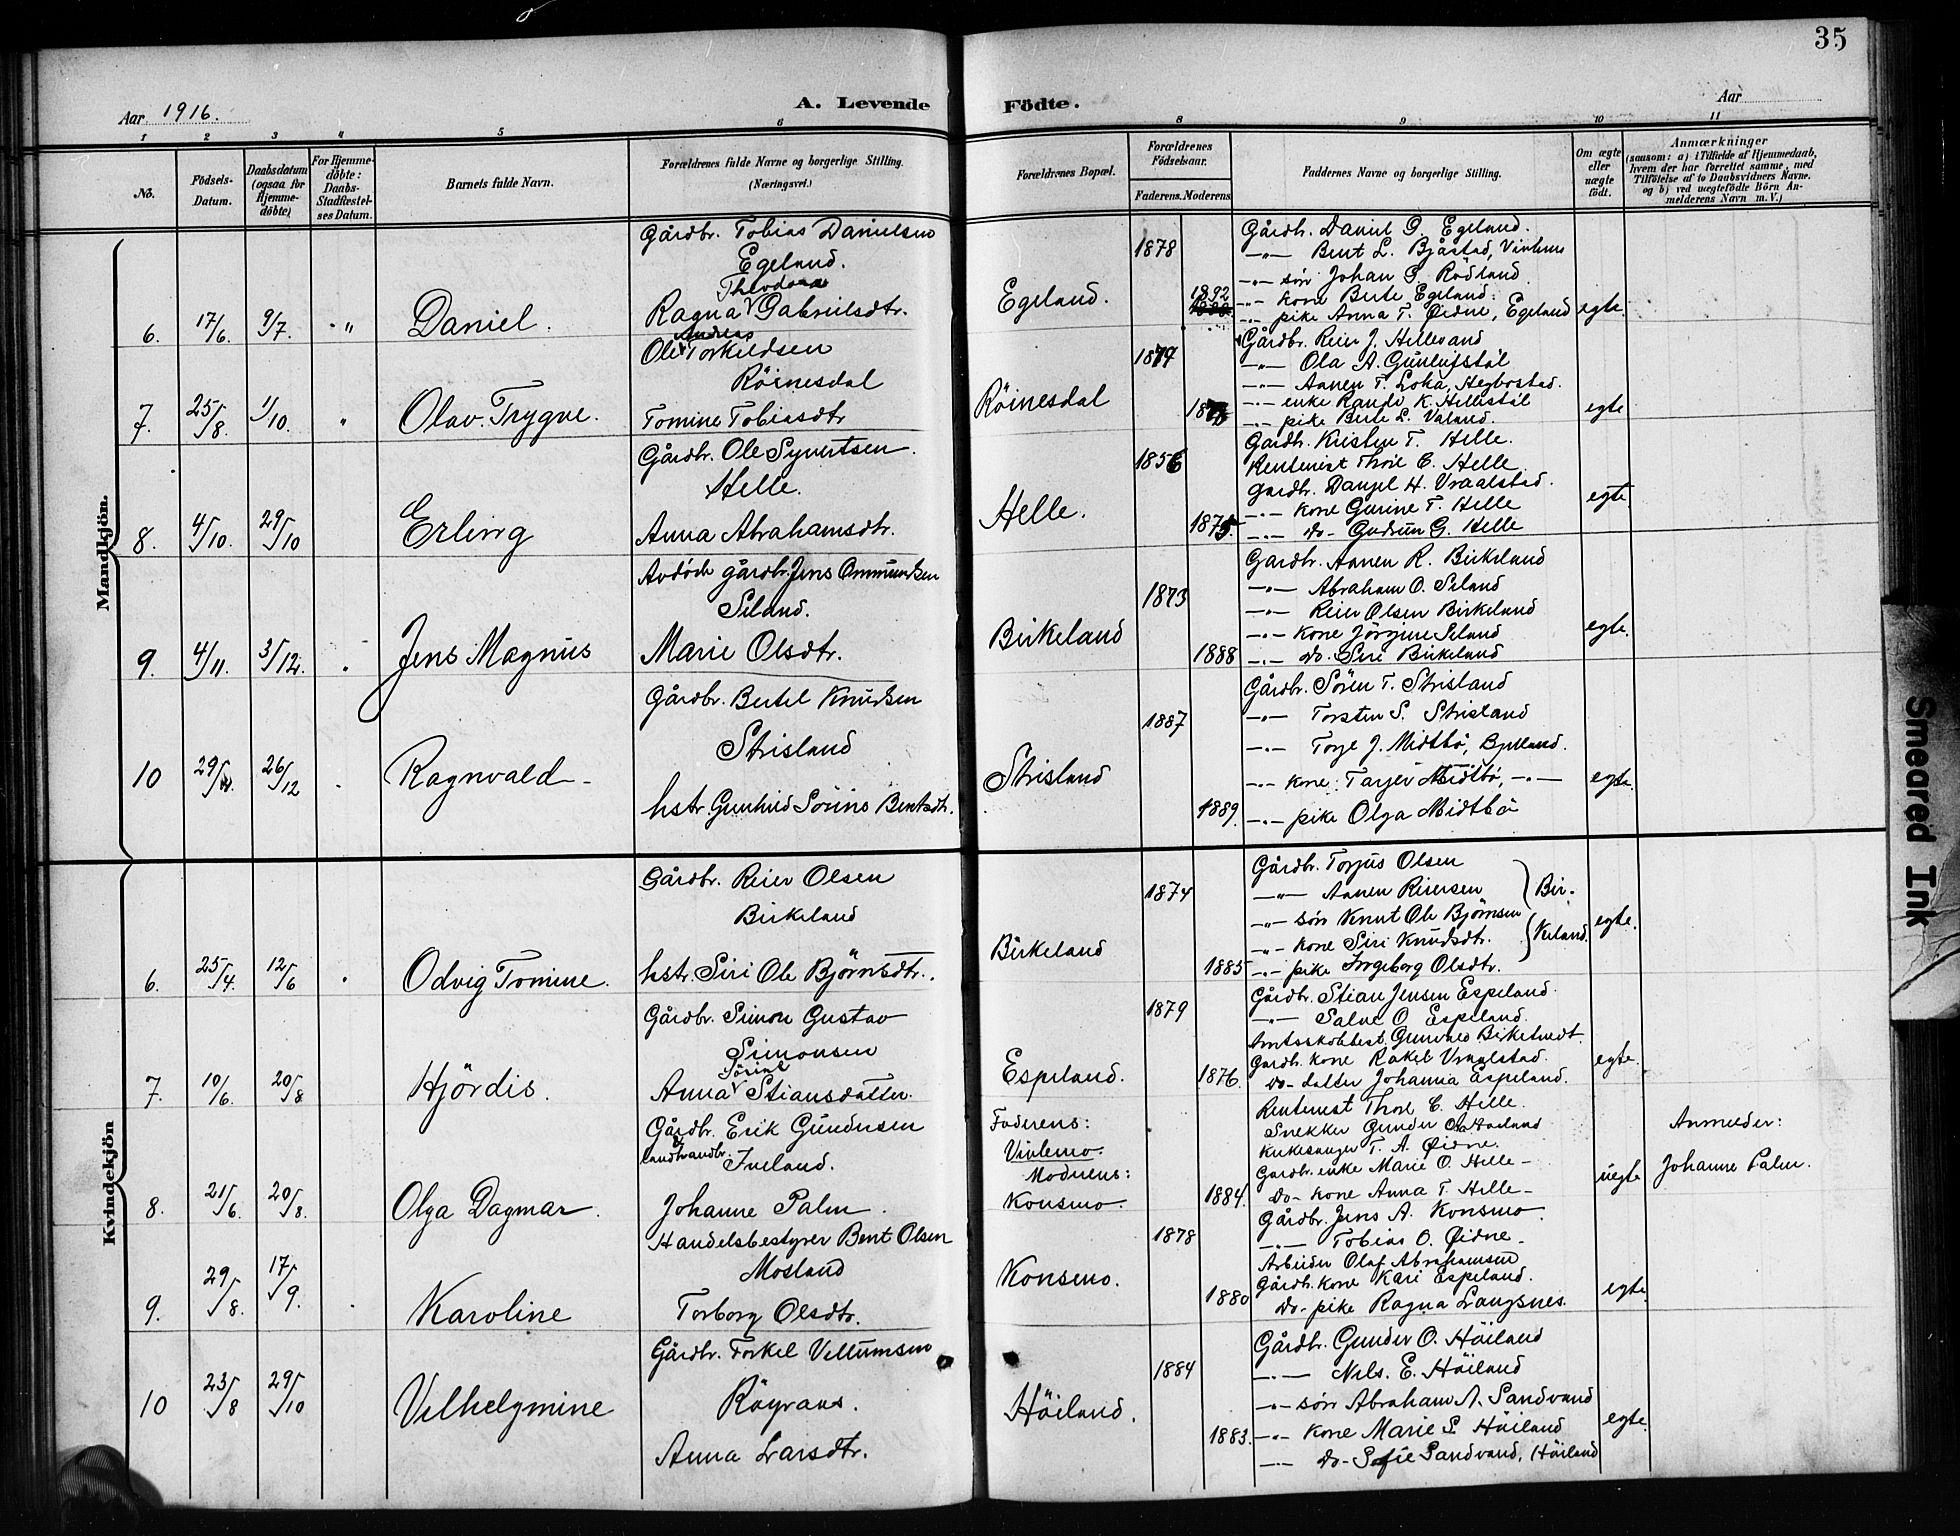 35
Aar 1916.
A. Levende
Födte.
Aar
1 2 3 4 5 6
8 9 10 11
No.
Födsels-
Datum.
Daabsdatum
(ogsaa for
Hjemme-
döbte)
For Hjemme-
döbte:
Daabs-
Stadfæstel-
ses Datum.
Barnets fulde Navn.
Forældrenes fulde Navne og borgerlige Stilling.
(Næringsvei.)
Forældrenes Bopæl.
Forældrenes
Födselsaar.
Faderens. Moderens.
Faddernes Navne og borgerlige Stilling.
Om ægte
eller
uægte
födt.
Anmærkninger
(saasom: a) i Tilfælde af Hjemmedaab,
hvem der har forrettet samme, med
Tilföielse af to Daabsvidners Navne.
og b) ved uægtefödte Börn An-
melderens Navn m. V.)
Mandkjön.
6. 17/6. 9/7. " Daniel.
Gårdbr. Tobias Danielsen
Egeland.
Theodora
Ragna Gabrielsdtr.
Egeland.
1878
1892
Gårdb. Daniel O. Egeland.
-"- Bent L. Bjåstad, Vivlemo
-"- sön Johan G. Rödland
-"- kone Berte Egeland.
-"- pike Anna T. Öidne, Egeland
egte.
7. 25/8. 1/10. " Olav Trygve.
Andreas
Ole Torkildsen
Röinesdal
Tomine Tobiasdtr
Röinesdal
1874
Gårdbr. Reier J. Hellevand
-"- Ola A. Gunlufstöl
-"- Aanen T. Loka, Hegbostad.
-"- enke Randi K. Hellestöl
-"- pike Berte L. Valand.
egte
8. 4/10. 29/10 Erling
Gårdbr. Ole Syvertsen.
Helle.
Anna Abrahamsdtr.
Helle.
1856
1875.
Gardb. Kristen T. Helle.
Rentenist Thore C. Helle
Gardb. Danjel H. Vraalstad.
-"- kone Gurine T. Helle
-"- do- Gudrun G. Helle
egte.
9. 4/11. 3/12. Jens Magnus
Avdöde gårdbr. Jens Ommundsen
Seland.
Marie Olsdtr.
Birkeland
1873
1888
Gardbr. Aanen R. Birkeland
-"- Abraham O. Seland
-"- Reier Olsen Birkeland
-"- kone Jörgine Seland
-"- do. Siri Birkeland
egte.
10 29/ 26/12 Ragnvald-
Gårdbr. Bertel Knudsen
Strisland
hstr. Gunhild Sörine Bentsdtr.
Strisland
1887
1889.
Gårdbr. Sören T. Strisland
-"- Torsten S. Strisland
-"- Torje J. Midtbö, Bjelland.
-"- kone: Tarjer Midtbö, -"-
-"- pike Olga Midtbö
egte.
Kvindekjön
6. 25/4. 12/6 Odvig Tomine.
Gårdbr. Reier Olsen
Birkeland
hstr. Siri Ole Björnsdtr.
Birkeland
1874
1885
Gårdbr. Torjus Olsen
-"- Aanen Reiersen
-"- sön Knut Ole Björnsen
-"- kone Siri Knudsdtr.
-"- pike Ingeborg Olsdtr.
Bir-
keland.
egte.
7. 10/6. 20/8 Hjördis.
Gårdbr. Simon Gustav
Simonsen
Sörine
Anna Stiansdatter.
Espeland.
1879
1876.
Gårdbr. Stian Jensen Espeland.
-"- Salve O. Espeland.
Amtsskolebest. Gunvald Birketvedt.
Gardb. kone Rakel Vraalstad.
do- datter Johanna Espeland.
egte.
8. 21/6 20/8. Olga Dagmar.
Gårdbr. Erik Gundersen
& landhandbr. Iveland.
Johanne Palm.
Faderens:
Vivlemo.
Moderens:
Konsmo.
1884.
Rentenist Thore C. Helle.
Snekker Gunder O. Haaland
Kirkesanger T. A. Öidne.
Gardb. enke Marie O. Helle-
do- kone Anna T. Helle-
uegte
Anmelder:
Johanne Palm.
9. 29/8. 17/9. Karoline
Handelsbestyrer Bent Olsen
Mosland
Torborg Olsdtr.
Konsmo.
1878
1880
Gårdbr. Jens A. Konsmo.
-"- Tobias O. Öidne-
Arbeider Olaf Abrahamsen
Gårdb. kone Kari Espeland.
do- pike Ragna Langsnes.
egte.
10 23/8 29/10 Vilhelgmine
Gårdbr. Torkel Vellumsen
Röyraas.
Anna Larsdtr.
Höiland.
1884
1883.
Gårdbr. Gunder O. Höiland
-"- Nils. E. Höiland
-"- sön Abraham A. Sandvand
-"- Kone Marie S. Höiland
-"- do- Sofie Sandvand, Höiland
egte.
Smeared Ink